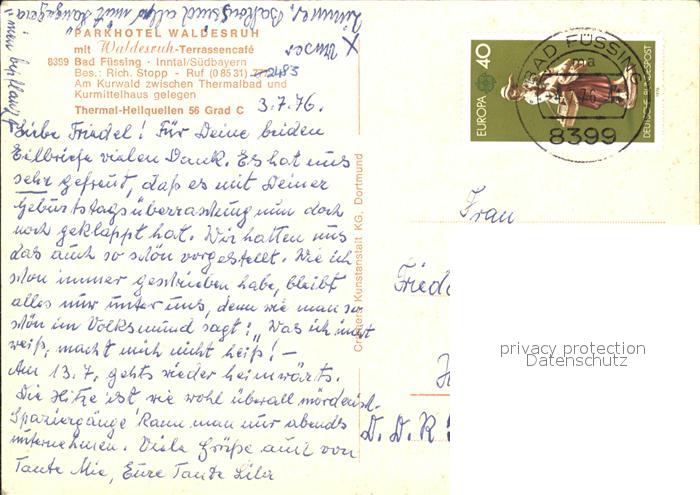 PARKHOTEL WALDESRUH
mit Waldesruh-Terrassencafé
8399 Bad Füssing - Inntal/Südbayern
Bes.: Rich. Stopp - Ruf (0 85 31) 2483
Am Kurwald zwischen Thermalbad und
Kurmittelhaus gelegen
Thermal-Heilquellen 56 Grad C
3.7.76.
Liebe Friedel! Für Deine beiden
Eilbriefe vielen Dank. Es hat uns
sehr gefreut, daß es mit Deiner
Geburtstagsüberraschung nun doch
noch geklappt hat. Wir hatten uns
das auch so schön vorgestellt. Wie ich
schon immer geschrieben habe, bleibt
alles nur unter uns, denn wie man so
schön im Volksmund sagt: „Was ich nicht
weiß, macht mich nicht heiß! –
Am 13.7. gehts wieder heimwärts.
Die Hitze ist wie wohl überall mörderisch.
Spaziergänge kann man nur abends
unternehmen. Viele Grüße auch von
Tante Mie, Eure Tante Lila
X unser
Zimmer, Balkons sind alle mit
Cramers Kunstanstalt KG, Dortmund
EUROPA 40
DEUTSCHE BUNDESPOST
BAD FÜSSING
8399
Frau
D.D.R
privacy protection
Datenschutz